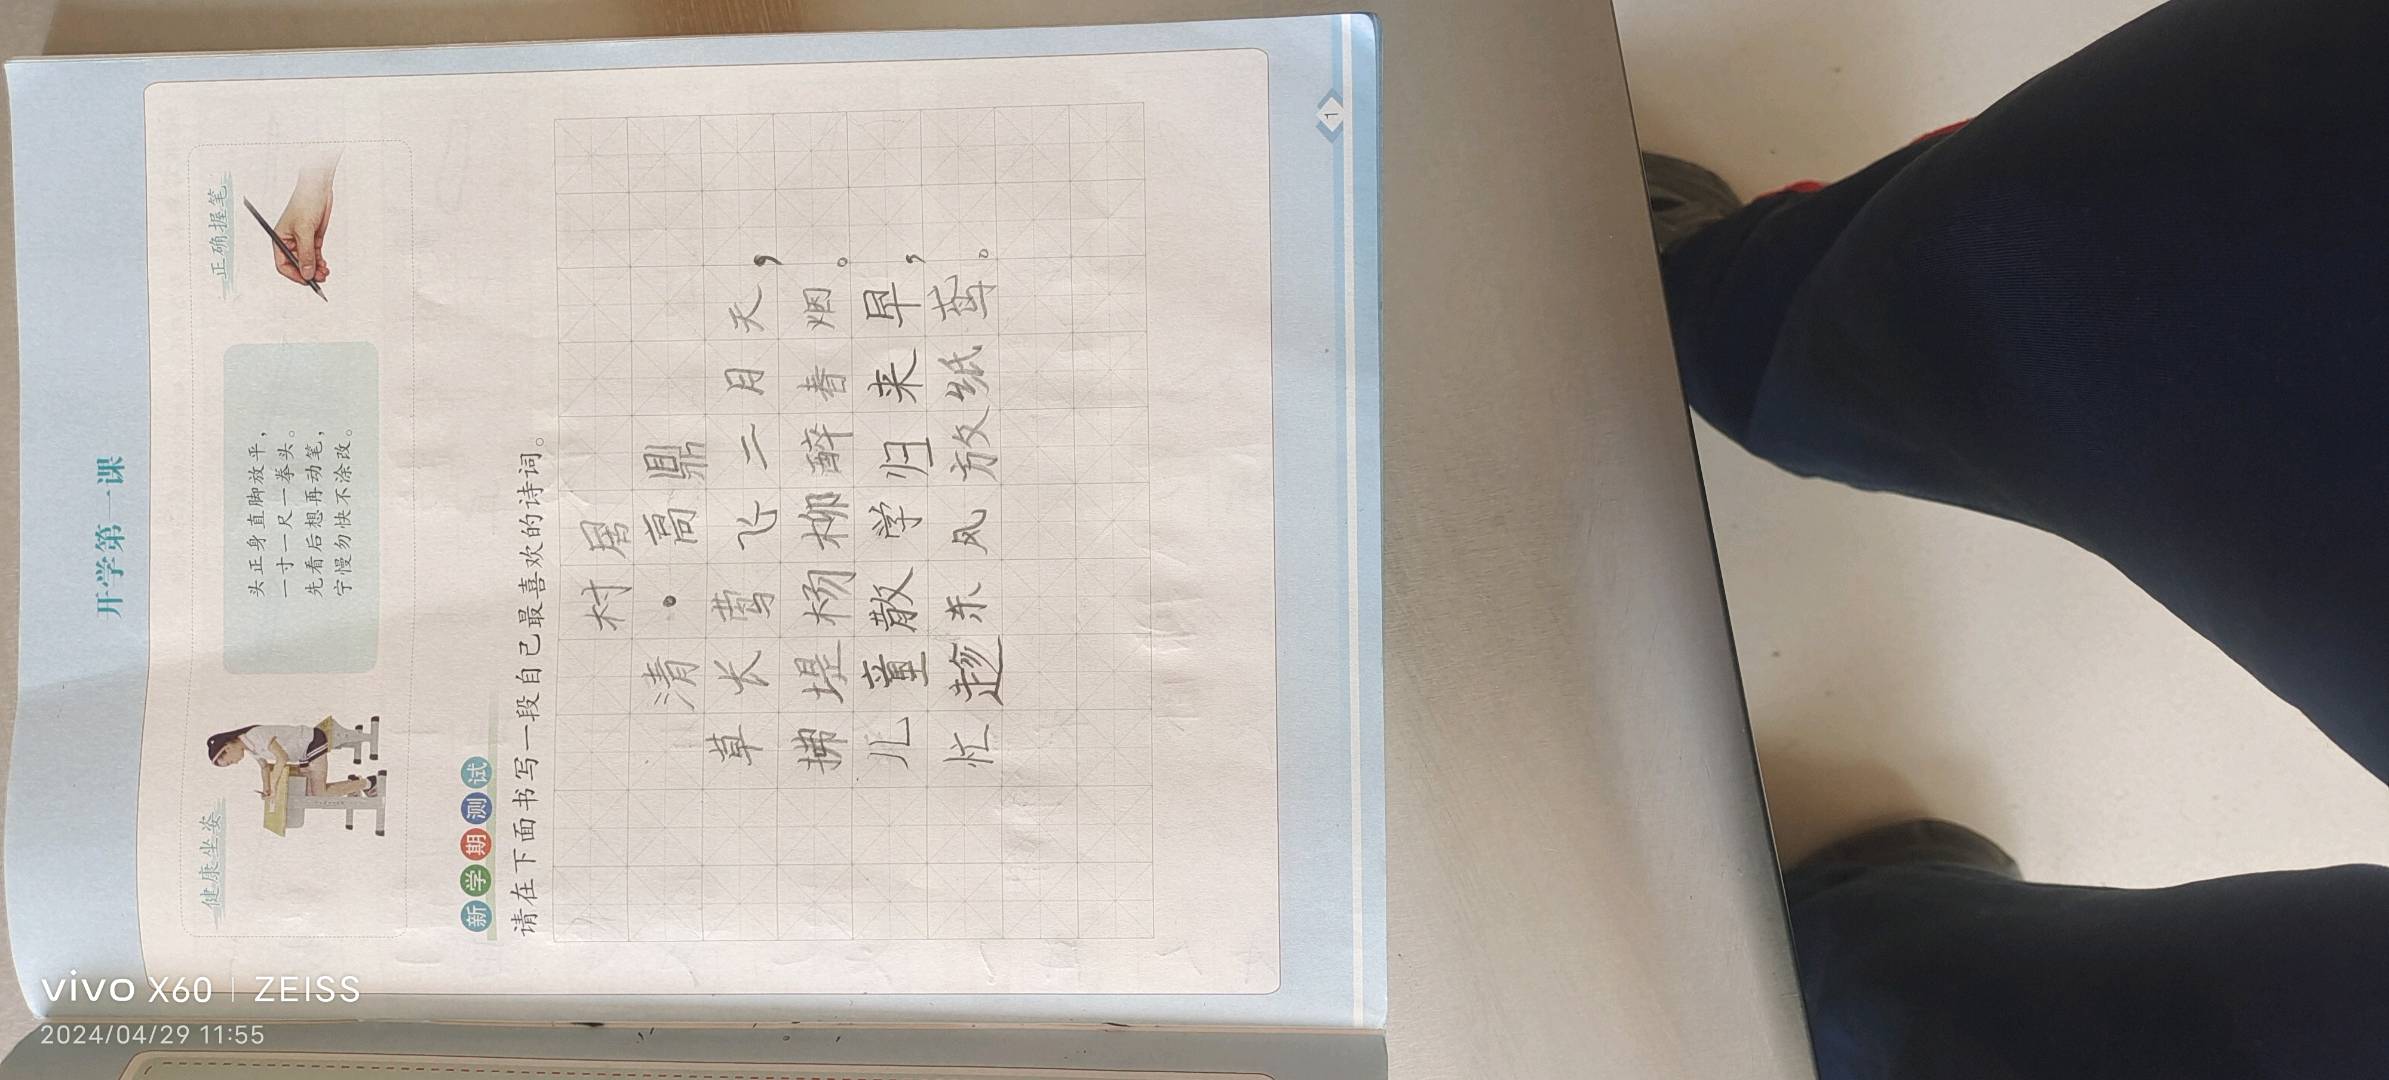 开学第一课
健康坐姿
头正身直脚放平，
一寸一尺一拳头。
先看后想再动笔，
宁慢勿快不涂改。
正确握笔
新学期测试
请在下面书写一段自己最喜欢的诗词。
村居
清·高鼎
草长莺飞二月天，
拂堤杨柳醉春烟。
儿童散学归来早，
忙趁东风放纸鸢。
1
vivo X60 | ZEISS
2024/04/29 11:55